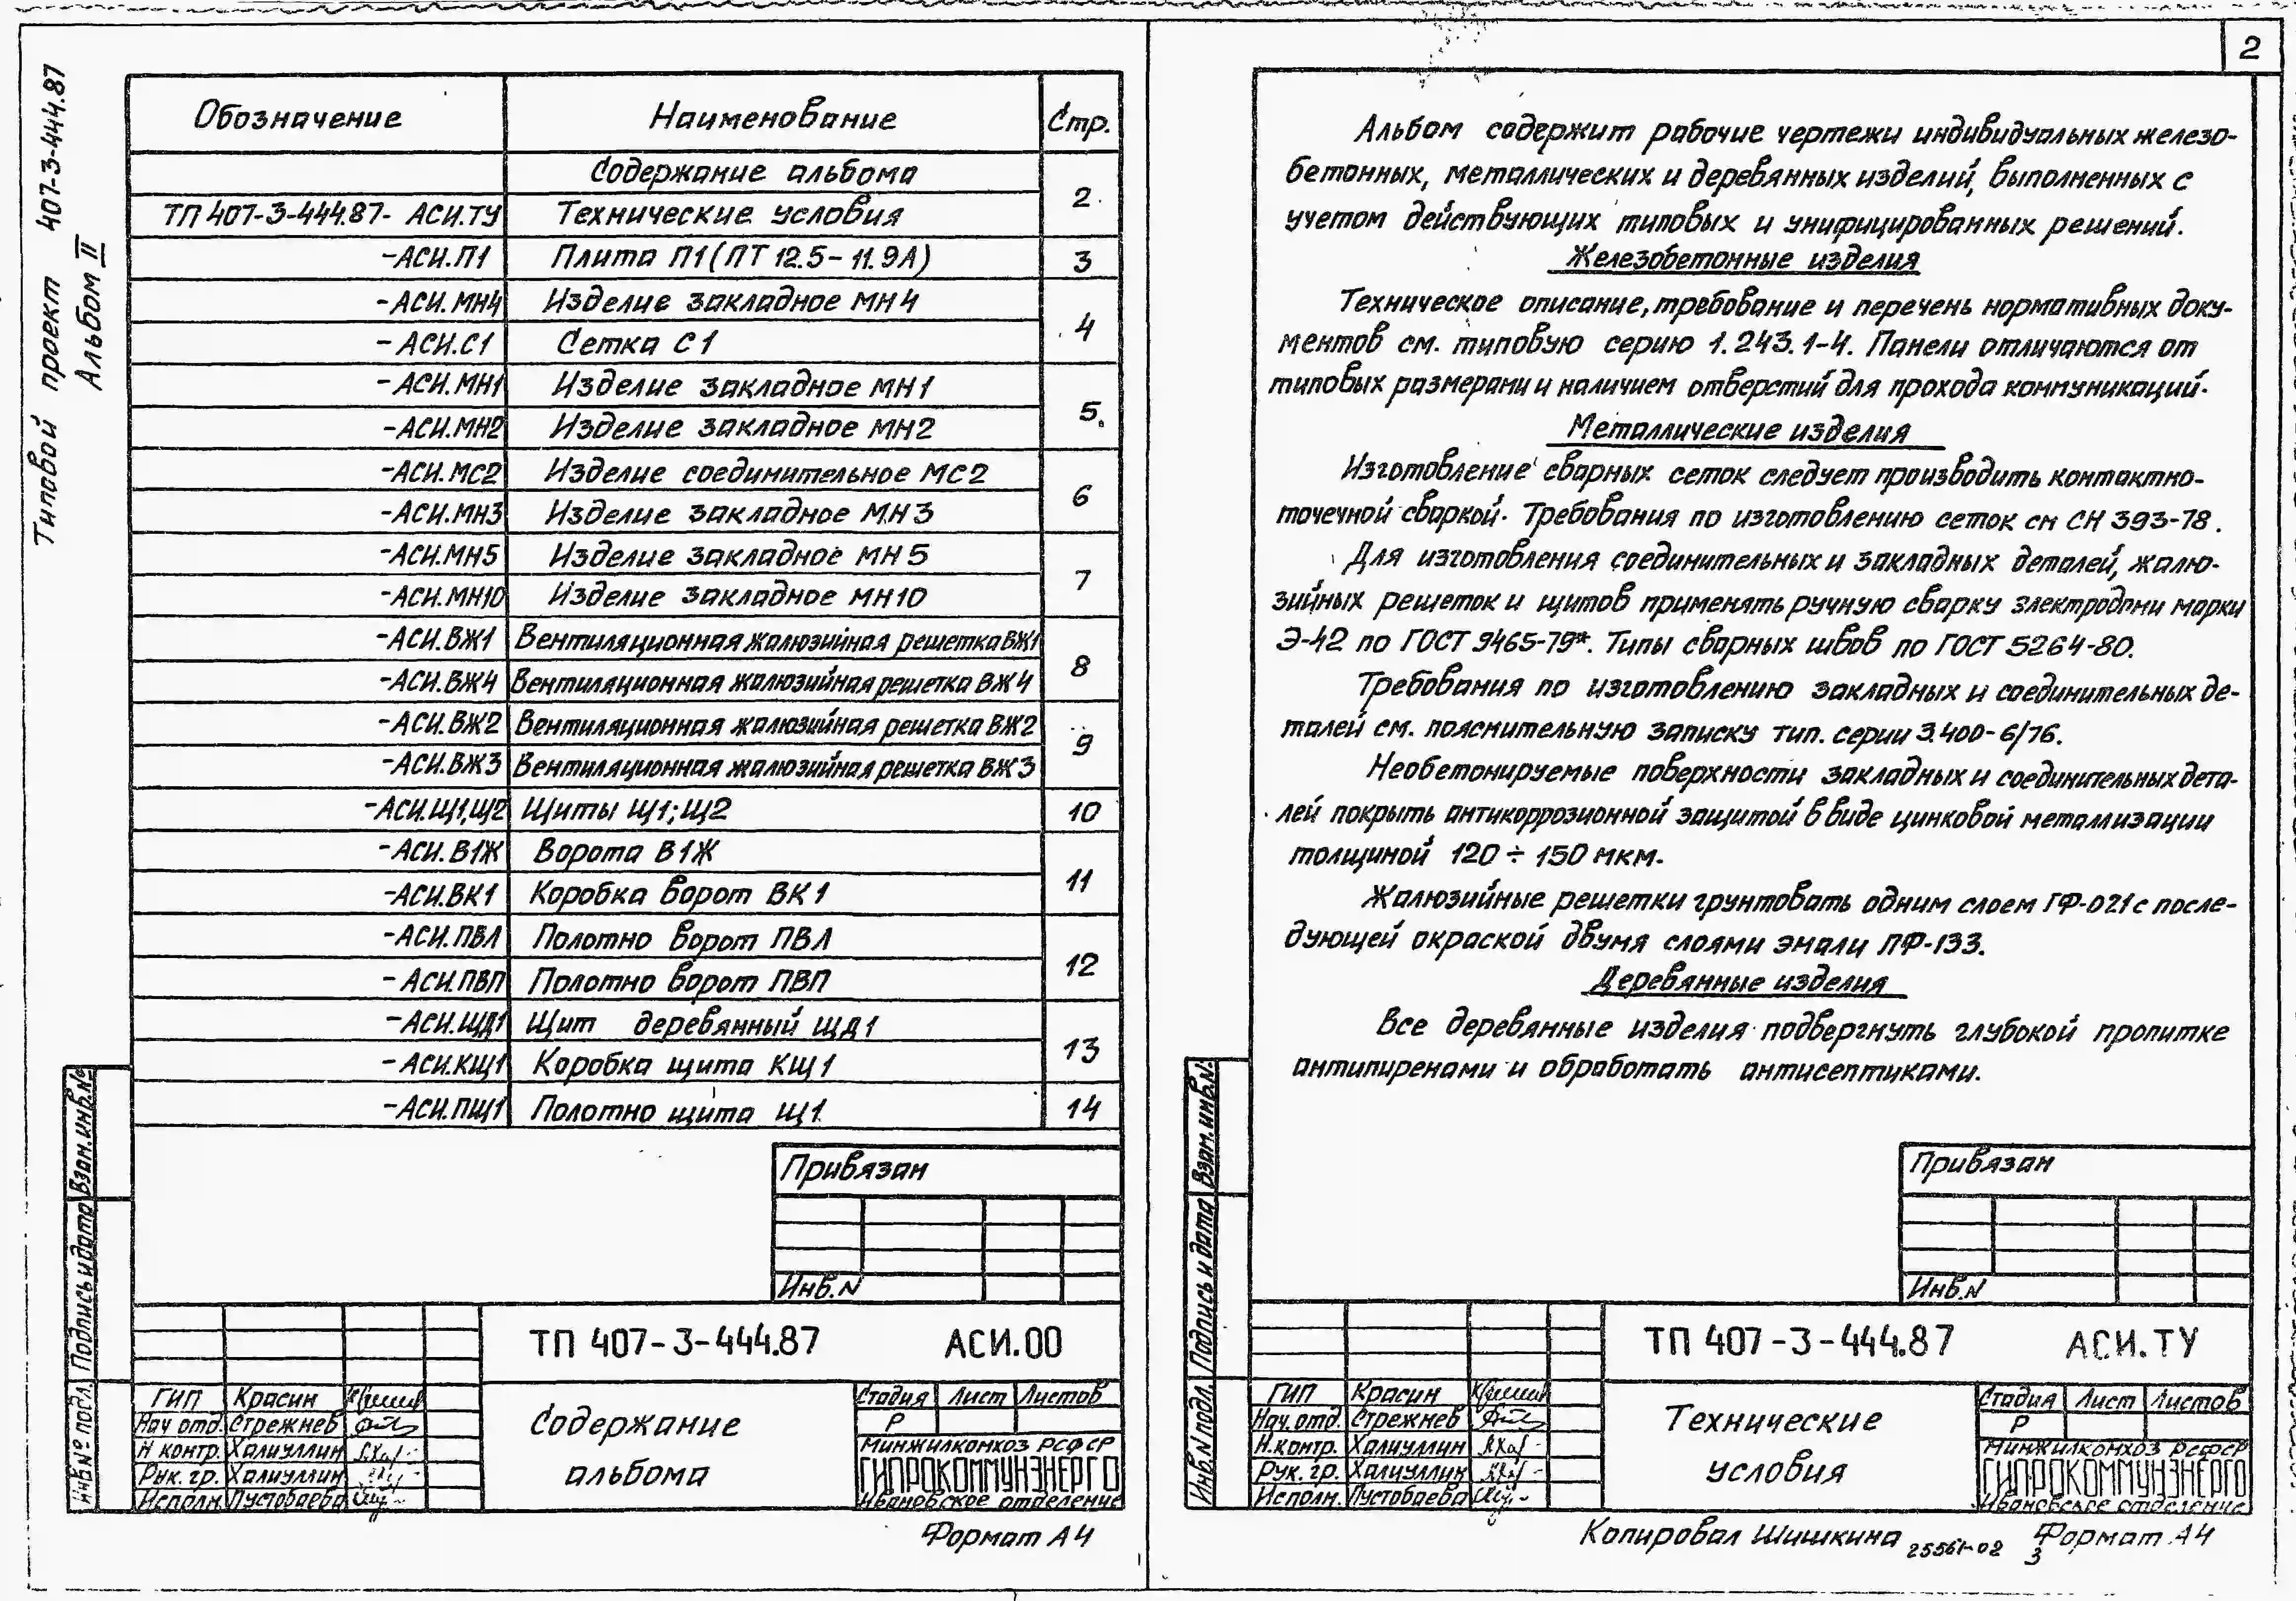 Типовой проект 407-3-444.87
Альбом II
Обозначение Наименование Стр.
Содержание альбома
2
ТП 407-3-444.87- АСИ.ТУ Технические условия
-АСИ.П1 Плита П1 (ПТ 12.5-11.9А) 3
-АСИ.МН4 Изделие закладное МН4
4
-АСИ.С1 Сетка С1
-АСИ.МН1 Изделие закладное МН1
5
-АСИ.МН2 Изделие закладное МН2
-АСИ.МС2 Изделие соединительное МС2
6
-АСИ.МН3 Изделие закладное МН3
-АСИ.МН5 Изделие закладное МН5
7
-АСИ.МН10 Изделие закладное МН10
-АСИ.ВЖ1 Вентиляционная жалюзийная решетка ВЖ1
8
-АСИ.ВЖ4 Вентиляционная жалюзийная решетка ВЖ4
-АСИ.ВЖ2 Вентиляционная жалюзийная решетка ВЖ2
9
-АСИ.ВЖ3 Вентиляционная жалюзийная решетка ВЖ3
-АСИ.Щ1,Щ2 Щиты Щ1; Щ2 10
-АСИ.В1Ж Ворота В1Ж
11
-АСИ.ВК1 Коробка ворот ВК1
-АСИ.ПВЛ Полотно ворот ПВЛ
12
-АСИ.ПВП Полотно ворот ПВП
-АСИ.ЩД1 Щит деревянный ЩД1
13
-АСИ.КЩ1 Коробка щита КЩ1
-АСИ.ПЩ1 Полотно щита Щ1 14
Привязан
Инв.N
Взам.инв.№
Подпись и дата
Инв№ подл.
ТП 407-3-444.87 АСИ.00
ГИП Красин
Нач отд. Стрежнев
Н контр. Халиуллин
Рук. гр. Халиуллин
Исполн. Пустобаева
Содержание
альбома
Стадия Лист Листов
Р
Минжилкомхоз РСФСР
ГИПРОКОММУНЭНЕРГО
Ивановское отделение
Формат А4
2
Альбом содержит рабочие чертежи индивидуальных железо-
бетонных, металлических и деревянных изделий, выполненных с
учетом действующих типовых и унифицированных решений.
Железобетонные изделия
Техническое описание, требование и перечень нормативных доку-
ментов см. типовую серию 1.243.1-4. Панели отличаются от
типовых размерами и наличием отверстий для прохода коммуникаций.
Металлические изделия
Изготовление сварных сеток следует производить контактно-
точечной сваркой. Требования по изготовлению сеток см СН 393-78.
Для изготовления соединительных и закладных деталей, жалю-
зийных решеток и щитов применять ручную сварку электродами марки
Э-42 по ГОСТ 9465-79*. Типы сварных швов по ГОСТ 5264-80.
Требования по изготовлению закладных и соединительных де-
талей см. пояснительную записку тип. серии 3.400-6/76.
Необетонируемые поверхности закладных и соединительных дета-
лей покрыть антикоррозионной защитой в виде цинковой металлизации
толщиной 120 ÷ 150 мкм.
Жалюзийные решетки грунтовать одним слоем ГФ-021 с после-
дующей окраской двумя слоями эмали ПФ-133.
Деревянные изделия
Все деревянные изделия подвергнуть глубокой пропитке
антипиренами и обработать антисептиками.
Привязан
Инв.N
Взам.инв.N.
Подпись и дата
Инв.N подл.
ТП 407-3-444.87 АСИ.ТУ
ГИП Красин
Нач.отд. Стрежнев
Н.контр. Халиуллин
Рук. гр. Халиуллин
Исполн. Пустобаева
Технические
условия
Стадия Лист Листов
Р
Минжилкомхоз РСФСР
ГИПРОКОММУНЭНЕРГО
Ивановское отделение
Копировал Шишкина 25561-02 3 Формат А4